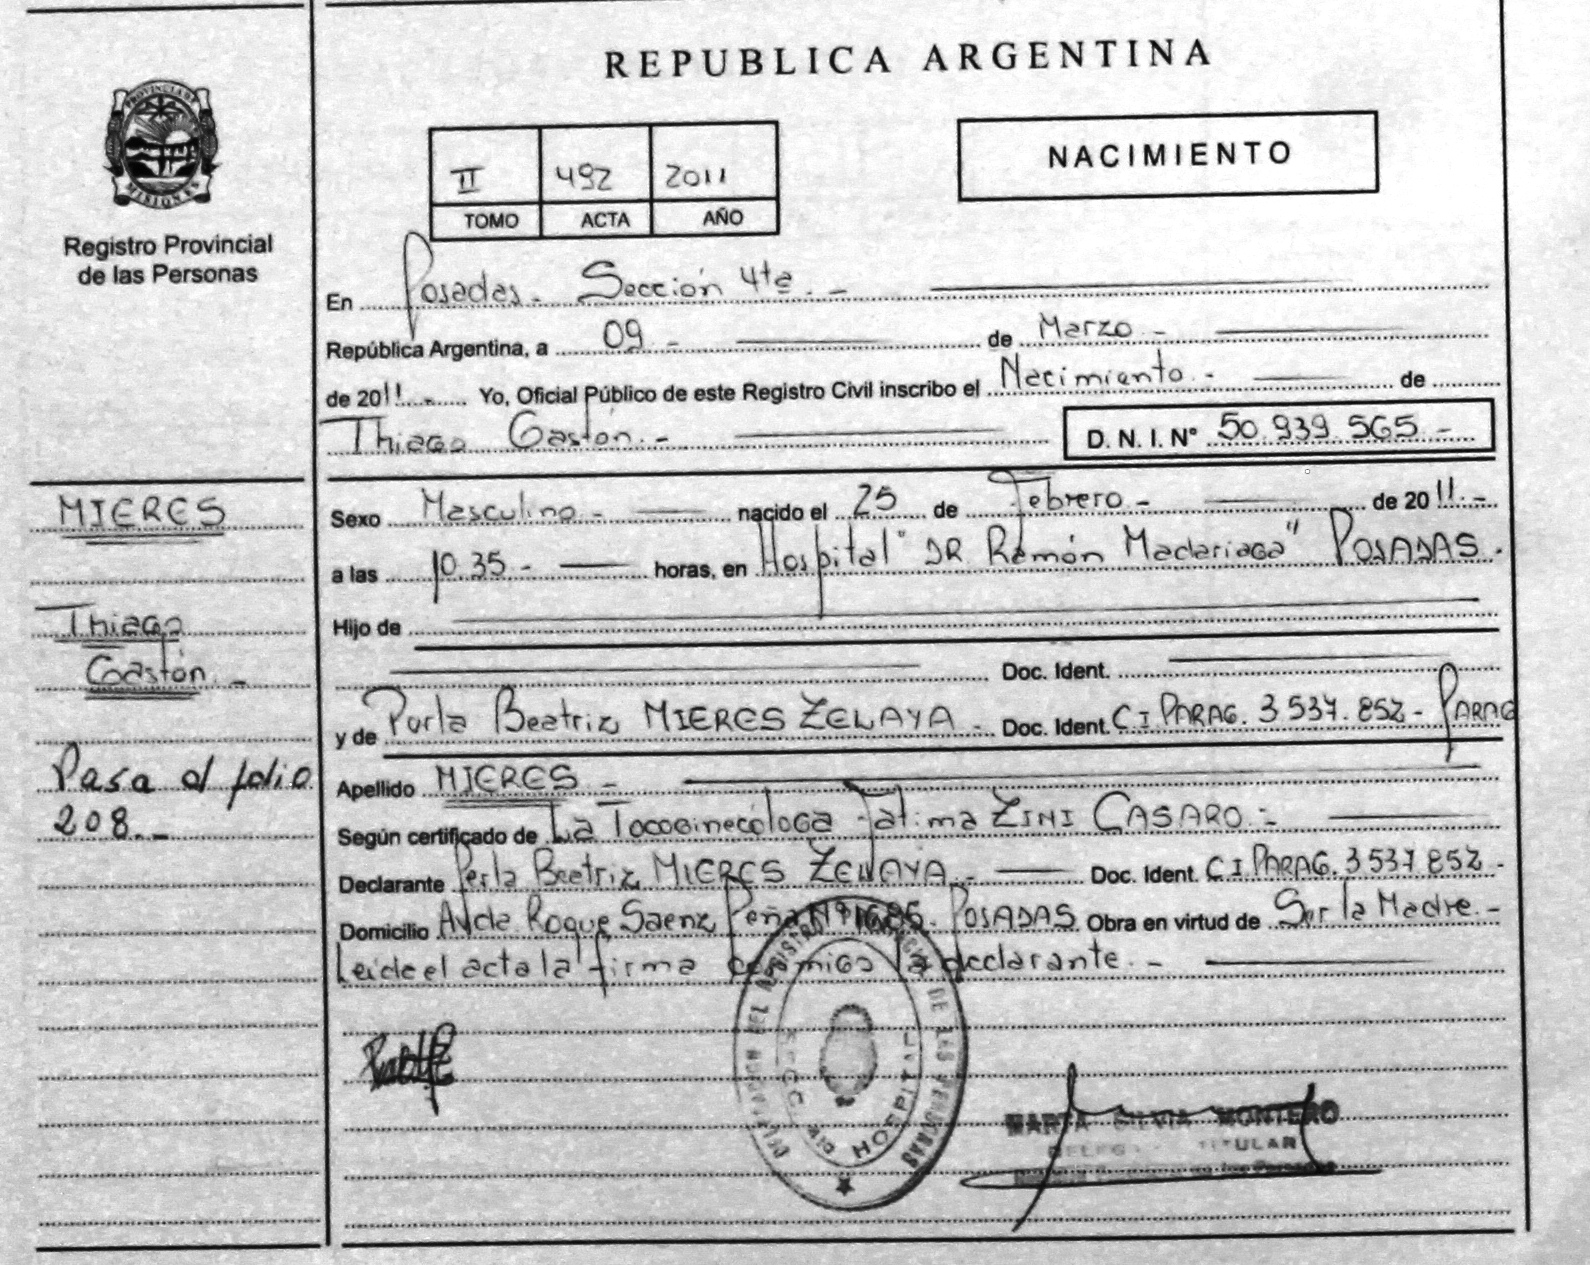 REPUBLICA ARGENTINA
PROVINCIA DE
MISIONES
Registro Provincial
de las Personas
NACIMIENTO
II 492 2011
TOMO ACTA AÑO
En Posadas - Sección 4ta. -
República Argentina, a 09 - de Marzo -
de 2011. - Yo, Oficial Público de este Registro Civil inscribo el Nacimiento. - de
Thiago Gastón. - D. N. I. Nº 50.939.565 -
MIERES
Sexo Masculino - nacido el 25 de Febrero - de 2011. -
a las 10.35 - horas, en Hospital "DR. Ramón Madariaga" POSADAS -
Thiago
Gastón. -
Hijo de
Doc. Ident.
y de Perla Beatriz MIERES ZELAYA - Doc. Ident. C I PARAG. 3 537. 852 - PARAG
Pasa al folio
208. -
Apellido MIERES -
Según certificado de La Tocoginecóloga Fatima ZINI CASARO. -
Declarante Perla Beatriz MIERES ZELAYA - Doc. Ident. C.I. PARAG. 3 537 852 -
Domicilio Avda Roque Saenz Peña Nº 1685 - POSADAS Obra en virtud de Ser la Madre. -
Leida el acta la firma conmigo la declarante. -
DE LAS PERSONAS
HOSPITAL
MARTA SILVIA MONTERO
TITULAR